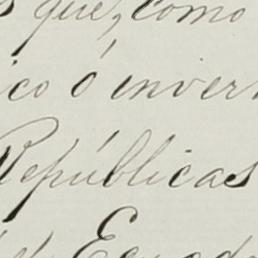 s que, como
ico ó inver
Repúblicas
el Ecuad